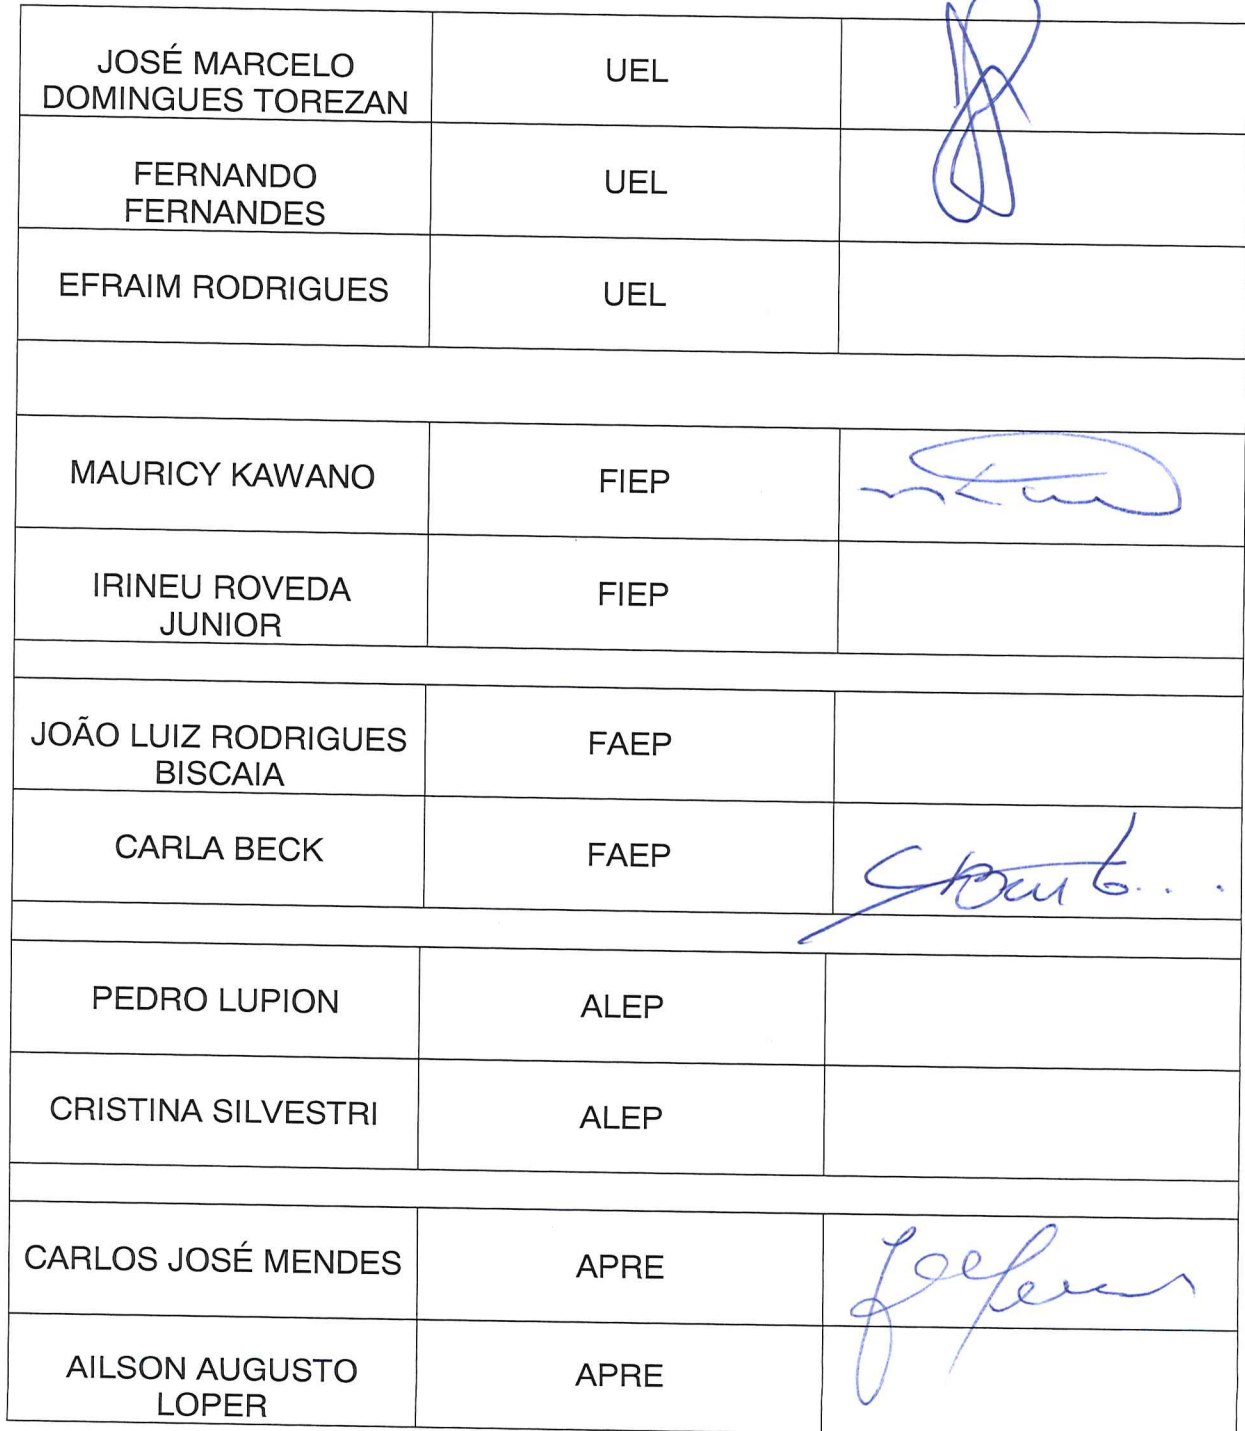 JOSÉ MARCELO
DOMINGUES TOREZAN
UEL
FERNANDO
FERNANDES
UEL
EFRAIM RODRIGUES
UEL
MAURICY KAWANO
FIEP
IRINEU ROVEDA
JUNIOR
FIEP
JOÃO LUIZ RODRIGUES
BISCAIA
FAEP
CARLA BECK
FAEP
PEDRO LUPION
ALEP
CRISTINA SILVESTRI
ALEP
CARLOS JOSÉ MENDES
APRE
AILSON AUGUSTO
LOPER
APRE